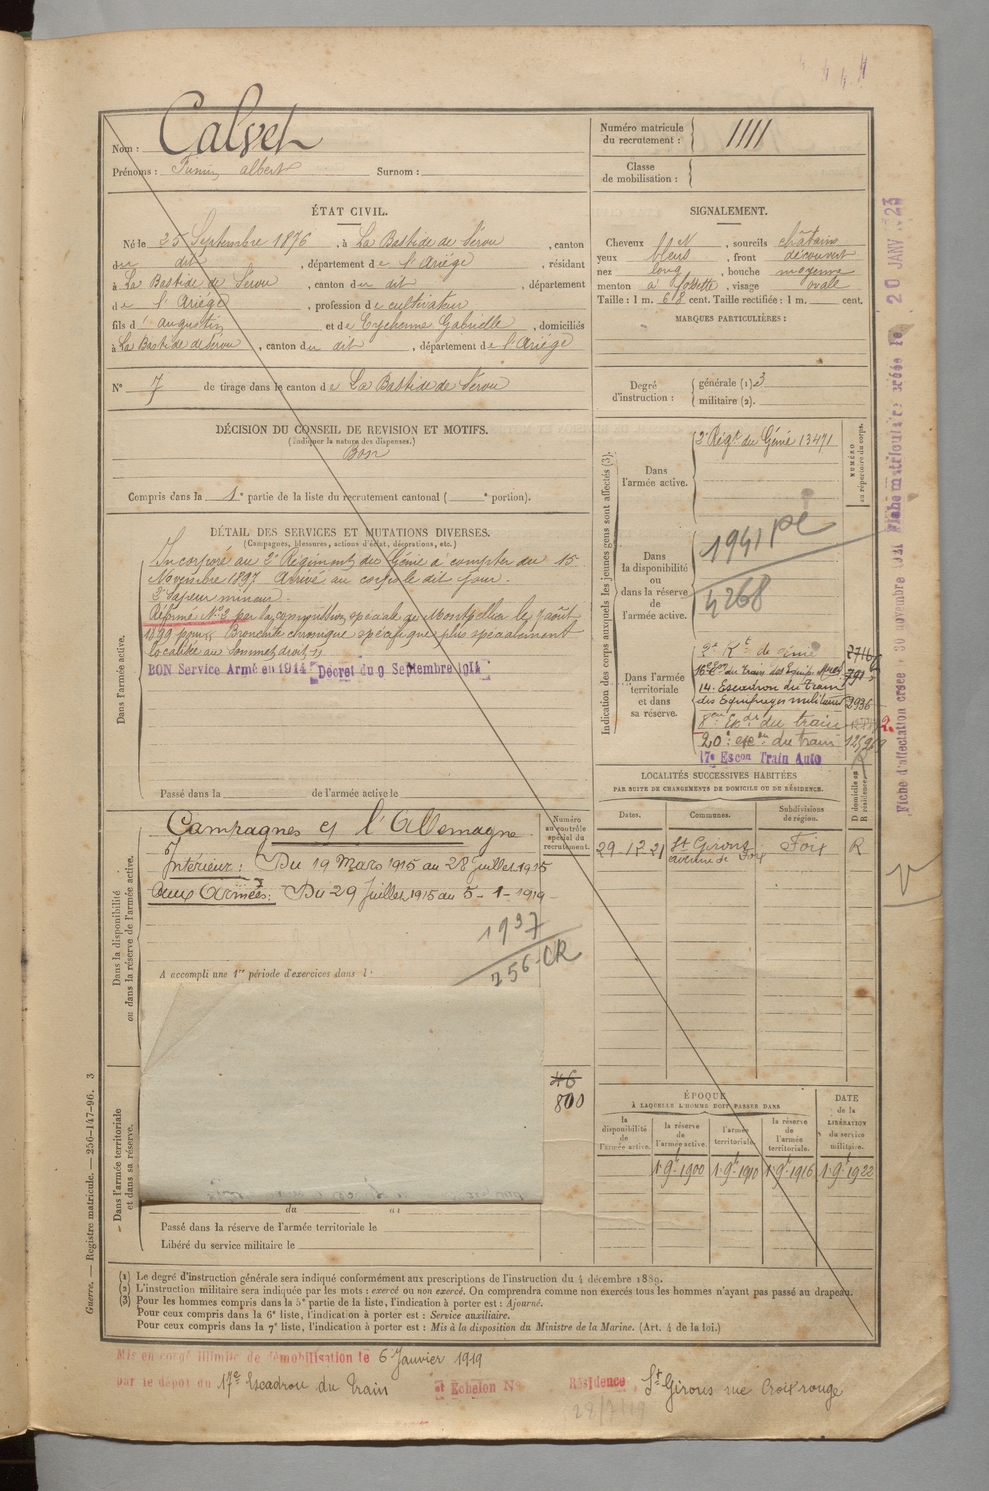 Nom : Calvet
Prénoms : Firmin albert Surnom :
Numéro matricule du recrutement : 1111
Classe de mobilisation :
ÉTAT CIVIL.
Né le 25 Septembre 1876, à La Bastide de Sérou, canton
du dit, département de l'Ariége, résidant
à La Bastide de Sérou, canton du dit, département
de l'Ariége, profession de cultivateur
fils d' augustin et de Eychenne Gabrielle, domiciliés
à La Bastide de Sérou, canton du dit, département de l'Ariége
N° 7 de tirage dans le canton de La Bastide de Sérou
SIGNALEMENT.
Cheveux , sourcils châtains
yeux bleus, front découvert
nez long, bouche moyenne
menton à fossette, visage ovale
Taille : 1 m. 618 cent. Taille rectifiée : 1 m. cent.
MARQUES PARTICULIÈRES :
Degré d'instruction : générale (1) 3
militaire (2).
DÉCISION DU CONSEIL DE REVISION ET MOTIFS.
(Indiquer la nature des dispenses.)
Bon
Compris dans la 1e partie de la liste du recrutement cantonal ( e portion).
DÉTAIL DES SERVICES ET MUTATIONS DIVERSES.
(Campagnes, blessures, actions d'éclat, décorations, etc.)
Dans l'armée active.
Incorporé au 2e Régiment du Génie à compter du 15
Novembre 1897 Arrivé au corps le dit jour.
2e Sapeur mineur.
Réformé N° 2 par la commission spéciale de Montpellier le août
1899 pour Bronchite chronique spécifique plus spécialement
localisée au Sommet droit
BON Service Armé en 1914 Décret du 9 Septembre 1914
Passé dans la de l'armée active le
Indication des corps auxquels les jeunes gens sont affectés (3).
NUMÉRO au répertoire du corps.
Dans l'armée active.
2e Régt du Génie 13471
Dans la disponibilité ou dans la réserve de l'armée active.
1941 pé
4268
Dans l'armée territoriale et dans sa réserve.
2e Rt de Génie
16e Eson du Train des Equip. Mres
14e Escadron du Train
des Equipages militaires 2936
8eme Exdr du train
20e escon du train
17e Escon Train Auto
LOCALITÉS SUCCESSIVES HABITÉES
PAR SUITE DE CHANGEMENTS DE DOMICILE OU DE RÉSIDENCE.
Dates. Communes. Subdivisions de région. D domicile ou R résidence.
29-12-21 St Girons Foix R
avenue de Foix
Dans la disponibilité ou dans la réserve de l'armée active.
Numéro au contrôle spécial du recrutement.
Campagnes et l'Allemagne
Intérieur : Du 19 Mars 1915 au 28 juillet 1915
aux Armées : Du 29 Juillet 1915 au 5-1-1919
1937
256-CR
A accompli une 1re période d'exercices dans l
46
800
Dans l'armée territoriale et dans sa réserve.
du au
Passé dans la réserve de l'armée territoriale le
Libéré du service militaire le
ÉPOQUE
À LAQUELLE L'HOMME DOIT PASSER DANS
DATE de la LIBÉRATION du service militaire.
la disponibilité de l'armée active. la réserve de l'armée active. l'armée territoriale. la réserve de l'armée territoriale.
1-9t-1900 1-9t-1910 1-9t-1916 1-9t-1922
(1) Le degré d'instruction générale sera indiqué conformément aux prescriptions de l'instruction du 4 décembre 1889.
(2) L'instruction militaire sera indiquée par les mots : exercé ou non exercé. On comprendra comme non exercés tous les hommes n'ayant pas passé au drapeau.
(3) Pour les hommes compris dans la 5e partie de la liste, l'indication à porter est : Ajourné.
Pour ceux compris dans la 6e liste, l'indication à porter est : Service auxiliaire.
Pour ceux compris dans la 7e liste, l'indication à porter est : Mis à la disposition du Ministre de la Marine. (Art. 4 de la loi.)
Mis en congé illimité de démobilisation le 6 Janvier 1919
par le dépôt du 17e Escadron du Train et Echelon N° Résidence St Girons rue Croix rouge
28/7/19
Guerre. — Registre matricule. — 256-147-96. 3
Fiche matriculaire créée le 20 JANV 1923
Fiche d'affectation créée 30 novembre